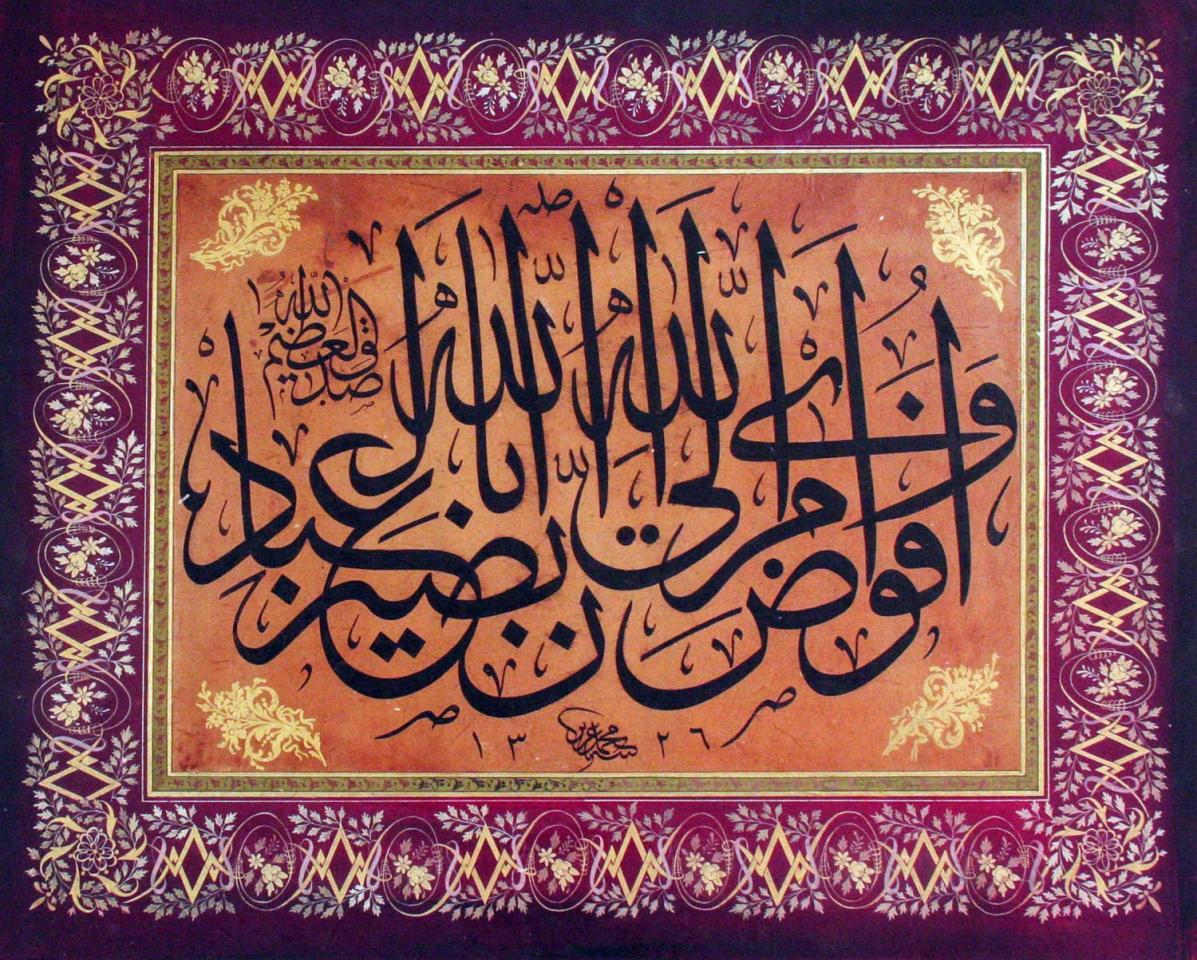 وَأُفَوِّضُ أَمْرِى إِلَى اللّٰهِ إِنَّ اللّٰهَ بَصِيرٌ بِالْعِبَادِ
صدق الله العظيم
١٣٢٦